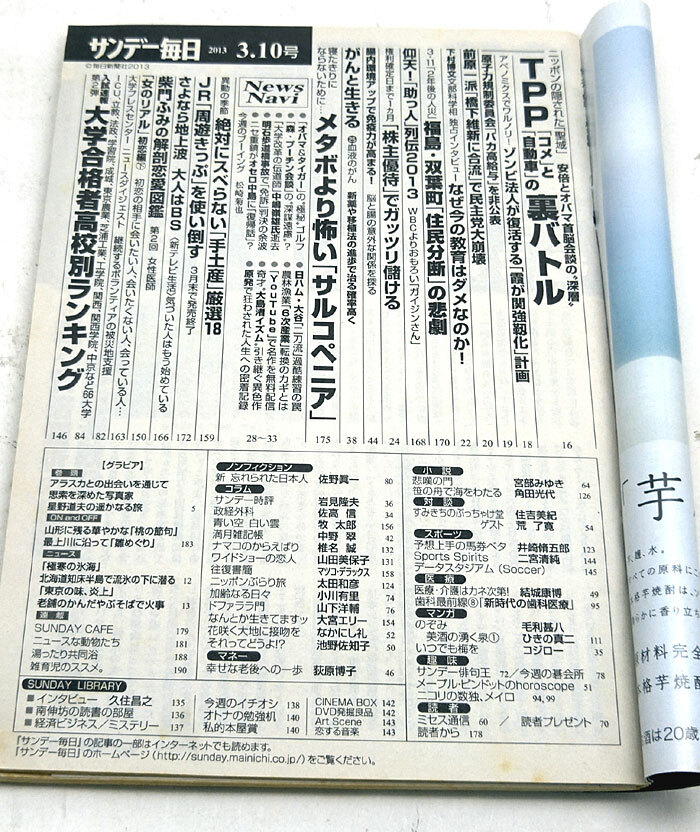 サンデー毎日 2013 3.10号
©毎日新聞社2013
ニッポンの隠された「聖域」 安倍とオバマ首脳会談の"深層"
TPP「コメ」と「自動車」の裏バトル 16
アベノミクスでワルノリ― ゾンビ法人が復活する「霞が関強靱化」計画 18
原子力規制委員会「バカ高給与」を非公表 19
前原一派「橋下維新に合流」で民主党大崩壊 20
下村博文文部科学相 独占インタビュー なぜ今の教育はダメなのか! 22
3・11「2年後の人災」 福島・双葉町「住民分断」の悲劇 170
仰天!「助っ人」列伝2013 WBCよりおもろい「ガイジンさん」 168
権利確定日まで1カ月 「株主優待」でガッツリ儲ける 24
腸内環境アップで免疫力が高まる! 脳と腸の意外な関係を探る 44
がんと生きる 血液のがん 新薬や移植法の進歩で治る確率高く 38
寝たきりにならないために― メタボより怖い「サルコペニア」 175
News Navi
●「オバマ&タイガー」の"極秘"ゴルフ
●「森・プーチン会談」の"深謀遠慮"?
●「大学改革の伝道師」中嶋嶺雄氏逝去
●明石歩道橋事故で「免訴」判決の余波
●ニセ重鎮がオセロ中島に「復帰話」?
今週のブーイング 松崎菊也
●日ハム・大谷「二刀流」過酷練習の罠
●農林漁業「6次産業」転換のカギとは
●「YouTube」で名作を無料配信
●奇才・大島渚イズム"引き継ぐ異色作
●原発で狂わされた人生への密着記録
28〜33
異動の季節 絶対にスベらない「手土産」厳選18 159
JR「周遊きっぷ」を使い倒す 3月末で発売終了 172
さよなら地上波 大人はBS 〈新テレビ生活〉気づいた人はもう始めている 166
柴門ふみの解剖恋愛図鑑 第2回 女性医師 150
「女のリアル」初恋編① 初恋の相手に会いたい人、会いたくない人、会っている人… 163
大学プレスセンター ニュースダイジェスト 継続するボランティアの被災地支援 82
ICU、立教、法政、学習院、成城、東京農業、芝浦工業、工学院、関西、関西学院、中京など66大学 84
入試速報第2弾 大学合格者高校別ランキング 146
【グラビア】
巻頭
アラスカとの出会いを通じて
思索を深めた写真家
星野道夫の遥かなる旅 5
ON and OFF
山形に残る華やかな「桃の節句」
最上川に沿って「雛めぐり」 183
ニュース
「極寒の氷海」
北海道知床半島で流氷の下に潜る 12
「東京の味、炎上」
老舗のかんだやぶそばで火事 13
連載
SUNDAY CAFE 179
ニュースな動物たち 181
湯ったり共同浴 188
雑育児のススメ。 190
ノンフィクション
新 忘れられた日本人 佐野眞一 80
コラム
サンデー時評 岩見隆夫 36
政経外科 佐高信 34
青い空 白い雲 牧太郎 156
満月雑記帳 中野翠 42
ナマコのからえばり 椎名誠 132
ワイドショーの恋人 山田美保子 131
往復書簡 マツコ・デラックス 154
ニッポンぶらり旅 太田和彦 124
加齢なる日々 小川有里 74
ドファララ門 山下洋輔 76
なんとか生きてますッ 大宮エリー 54
花咲く大地に接吻を なかにし礼 52
それってどうよ!? 池野佐知子 50
マネー
幸せな老後への一歩 荻原博子 46
小説
悲嘆の門 宮部みゆき 64
笹の舟で海をわたる 角田光代 126
対談
すみきちのぶっちゃけ堂 住吉美紀
ゲスト 荒了寛 54
スポーツ
予想上手の馬券ベタ 井崎脩五郎 123
Sports Spirits 二宮清純 144
データスタジアム(Soccer) 145
医療
医療・介護はカネ次第! 結城康博 49
歯科最前線⑧「新時代の歯科医療」 95
マンガ
のぞみ 毛利甚八
美酒の湧く泉① ひきの真二 111
いつでも梅を コジロー 121
趣味
サンデー俳句王 72/今週の碁会所 78
メープル・ピンドットのhoroscope 51
ニコリの数独、メイロ 94,99
読者
ミセス通信 60 / 読者プレゼント 70
読者から 178
SUNDAY LIBRARY
■インタビュー 久住昌之 135
■南伸坊の読書の部屋 136
■経済ビジネス/ミステリー 137
今週のイチオシ 138
オトナの勉強机 140
私的本屋賞 140
CINEMA BOX 142
DVD発掘良品 142
Art Scene 143
恋する音楽 143
『サンデー毎日』の記事の一部はインターネットでも読めます。
『サンデー毎日』のホームページ(http://sunday.mainichi.co.jp/)をご覧ください。
芋
、麹、水。
原材料完全
格芋焼酎
酒は20歳